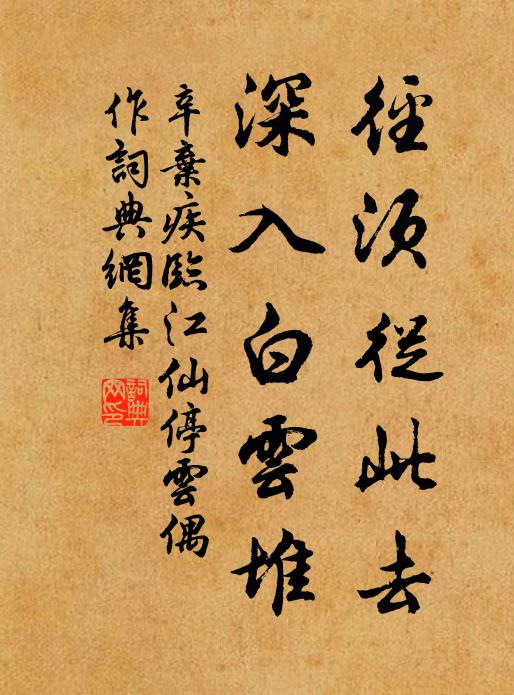 徑須從此去
深入白雲堆
辛棄疾臨江仙停雲偶
作詞典網集
詞典網印